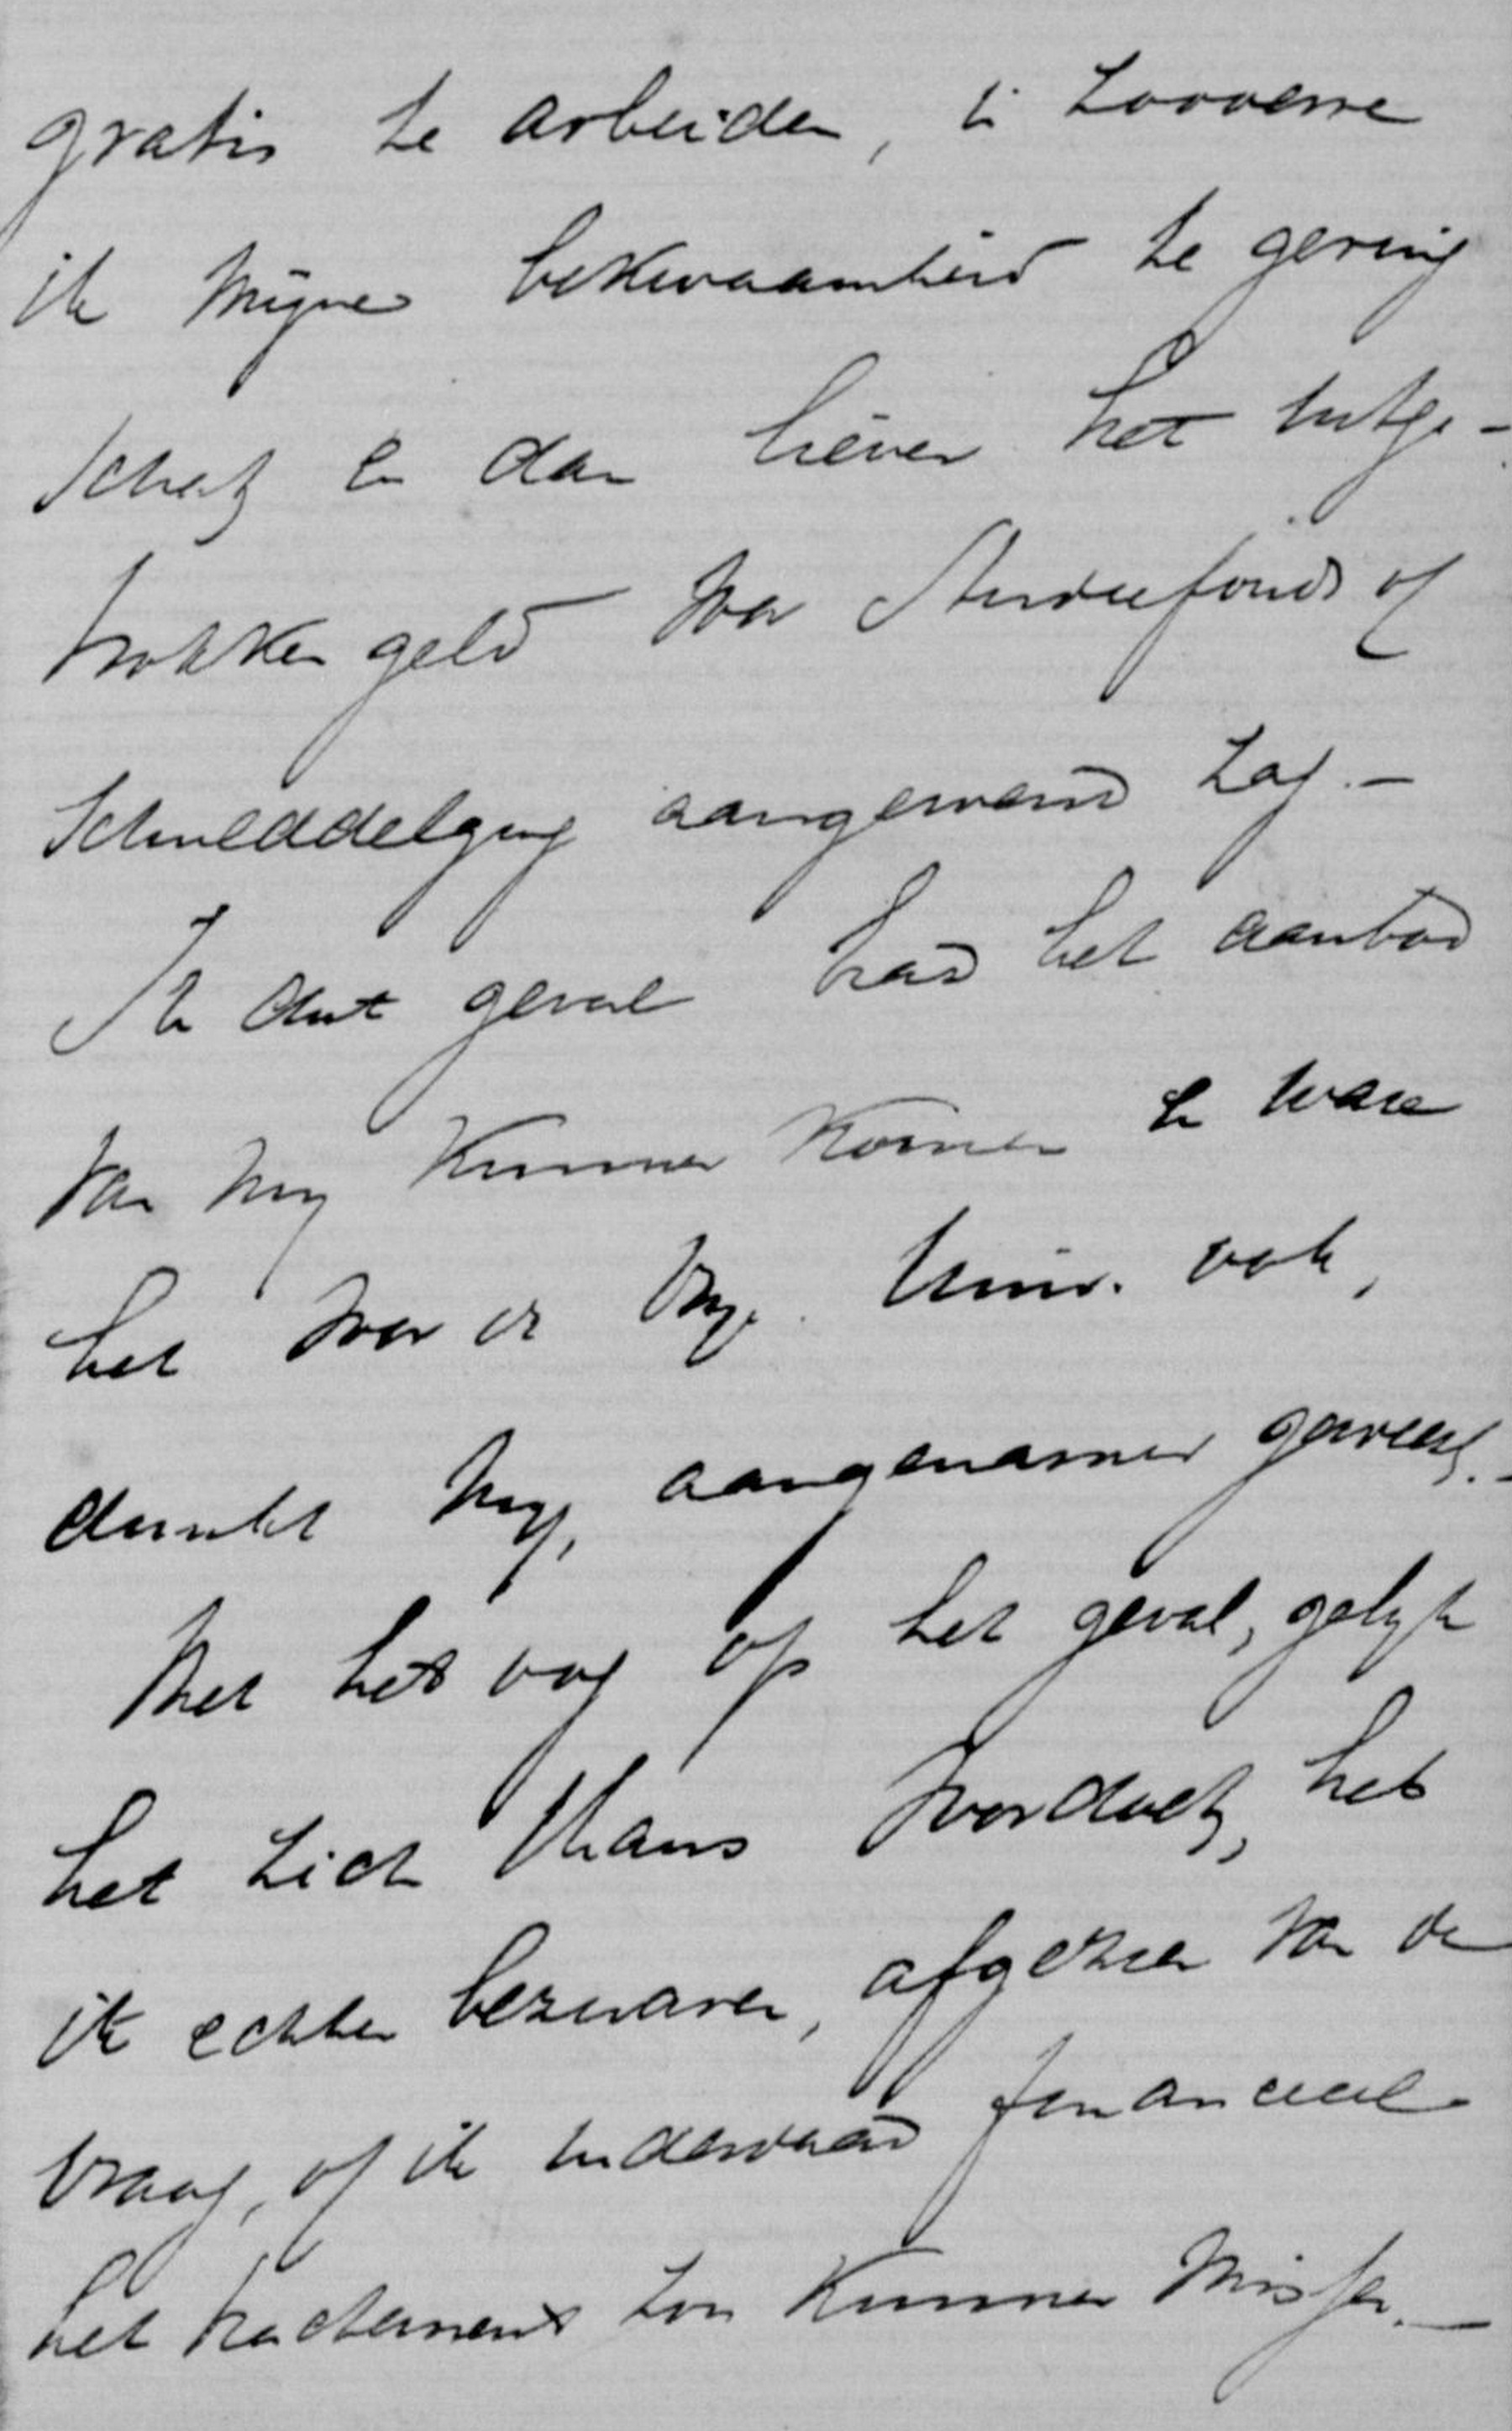 gratis te arbeiden, in zooverre
ik mijne bekwaamheid te gering
schat en dan liever het uitge-
trokken geld voor Studiefonds of
Schulddelging aangewend zag. -
In dat geval had het aanbod
van mij kunnen komen en ware
het voor de Vrije Univ. ook,
dunkt mij, aangenamer geweest. -
Met het oog op het geval, gelijk
het zich thans voordoet, heb
ik echter bezwaren, afgezien van de
vraag, of ik inderdaad financieel
het tractement zou kunnen missen. -